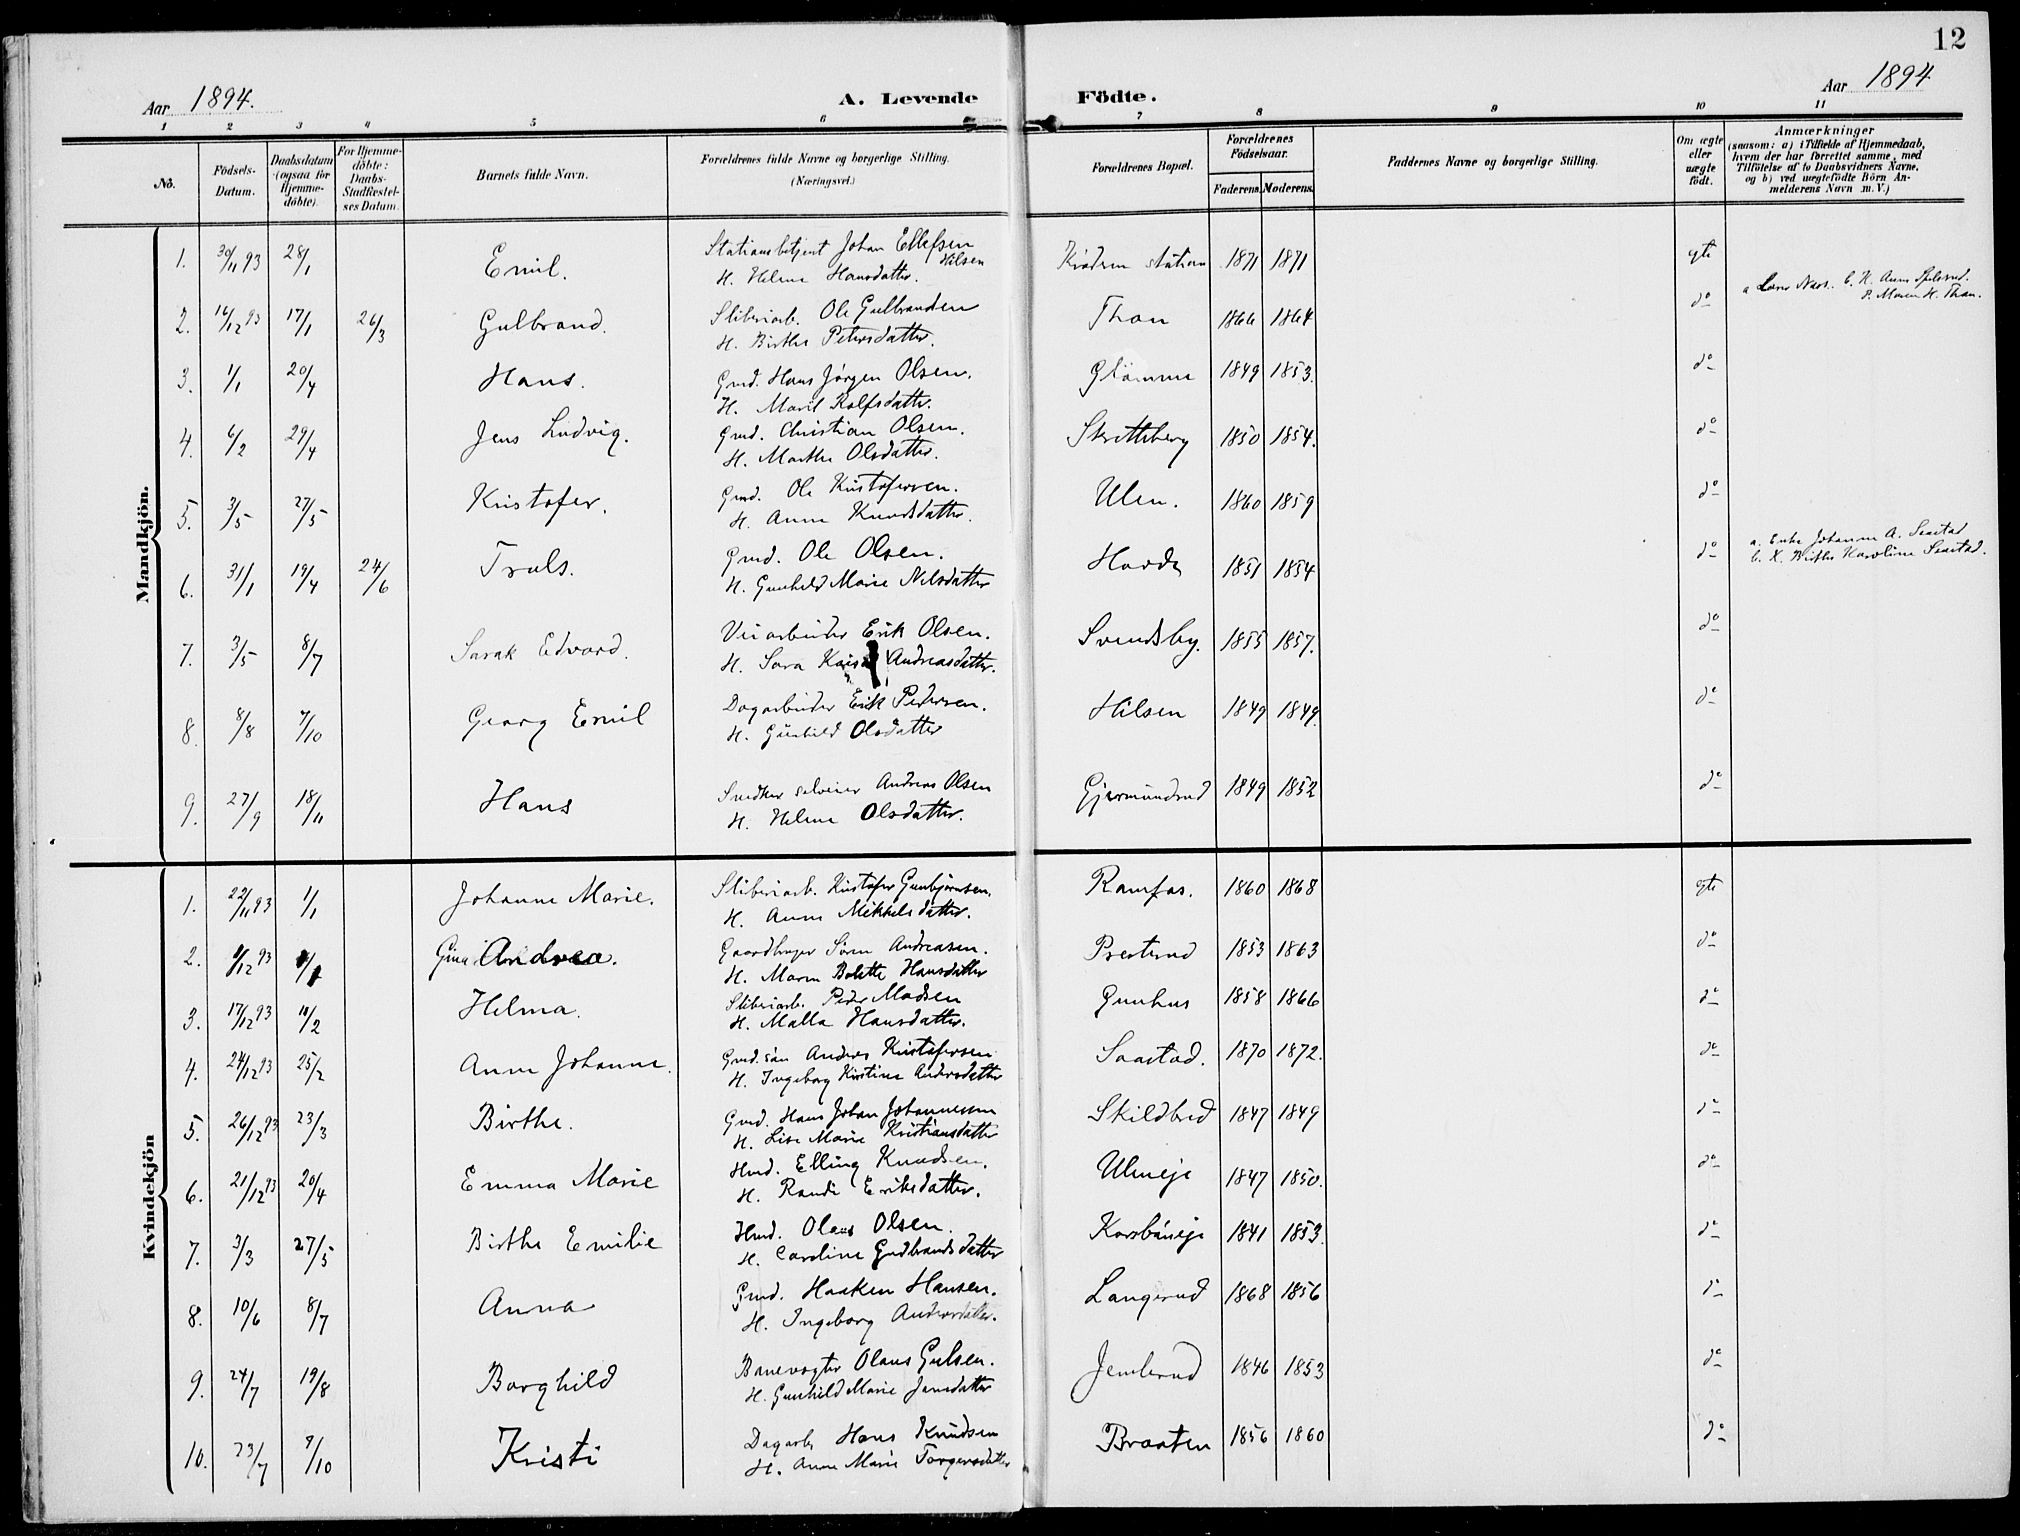 12
Aar 1894.
A. Levende Födte.
Aar 1894
1 2 3 4 5 6 7 8 9 10 11
No.
Födsels-Datum.
Daabsdatum (ogsaa for Hjemme-döbte).
For Hjemme-döbte: Daabs-Stadfæstel-ses Datum.
Barnets fulde Navn.
Forældrenes fulde Navne og borgerlige Stilling. (Næringsvei.)
Forældrenes Bopæl.
Forældrenes Födselsaar.
Faderens. Moderens.
Faddernes Navne og borgerlige Stilling.
Om ægte eller uægte födt.
Anmærkninger
(saasom: a) i Tilfælde af Hjemmedaab,
hvem der har forrettet samme, med
Tilföielse af to Daabsvidners Navne,
og b) ved uægtefödte Börn An-
melderens Navn m. V.)
Mandkjön.
1. 30/11 93 28/1 Emil. Stationsbetjent Johan Ellefsen Hilsen Krödern station 1871 1871 gte
H. Helene Hansdatter.
2. 16/12 93 17/1 26/3 Gulbrand. Sliberiarb. Ole Gulbrandsen Thon 1866 1864 do
H. Birthe Petersdatter.
3. 1/1 20/4 Hans. Gmd. Hans Jørgen Olsen. Glömme 1849 1853. do
H. Marit Rolfsdatter.
4. 6/2 29/4 Jens Ludvig. Gmd. Christian Olsen. Skretteberg 1850 1854. do
H. Marthe Olsdatter.
5. 3/5 27/5 Kristofer. Gmd. Ole Kristofersen. Ulen. 1860 1859 do
H. Anne Knudsdatter.
6. 31/1 19/4 24/6 Truls. Gmd. Ole Olsen. Hovde 1851 1854 do a. Enke Johanne A. Seastad
H. Gunhild Marie Nilsdatter b. K. Birthe Karoline Seastad.
7. 3/5 8/7 Sarak Edvard. Veiarbeider Erik Olsen. Svendsby. 1855 1857. do
H. Sara Andreasdatter.
8. 8/8 7/10 Georg Emil Dagarbeider Erik Pedersen. Hilsen 1849 1849. do
H. Gunhild Olsdatter
9. 27/9 18/11 Hans Snedker selveier Andreas Olsen Gjermundrud 1849 1852 do
H. Helene Olsdatter.
Kvindekjön
1. 22/11 93 1/1 Johanne Marie. Sliberiarb. Kristofer Gunbjørnsen. Ramfos. 1860 1868 gte
H. Anne Mikkelsdatter.
2. /12 93 Gina Andrea. Gaardbruger Søren Andreasen. Presterud 1853 1863 do
H. Maren Bolette Hansdatter
3. 17/12 93 18/2 Helma. Sliberiarb. Peder Madsen Gunhus 1858 1866 do
H. Malla Hansdatter.
4. 24/12 93 25/2 Anne Johanne. Gmd. søn Anders Kristofersen Saastad. 1870 1872. do
H. Ingeborg Kirstine Andersdatter
5. 26/12 93 23/3 Birthe. Gmd. Hans Johan Johannesen Skildbred 1847 1849 do
H. Lise Marie Kristiansdatter
6. 21/12 93 20/4 Emma Marie Hmd. Elling Knudsen. Ulneje 1847 1850. do
H. Randi Eriksdatter.
7. 3/3 27/5 Birthe Emilie Hmd. Olaus Olsen. Korsböneje 1841 1853. do
H. Caroline Gudbrandsdatter
8. 10/6 8/7 Anna Gmd. Haaken Hansen. Langerud 1868 1856 do
H. Ingeborg Andersdatter.
9. 24/7 19/8 Borghild Banevogter Olaus Gulsen. Jemlerud 1846 1853 do
H. Gunhild Marie Jensdatter
10. 23/7 7/10 Kristi Dagarb. Hans Knudsen Braaten 1856 1860 do
H. Anne Marie Torgersdatter